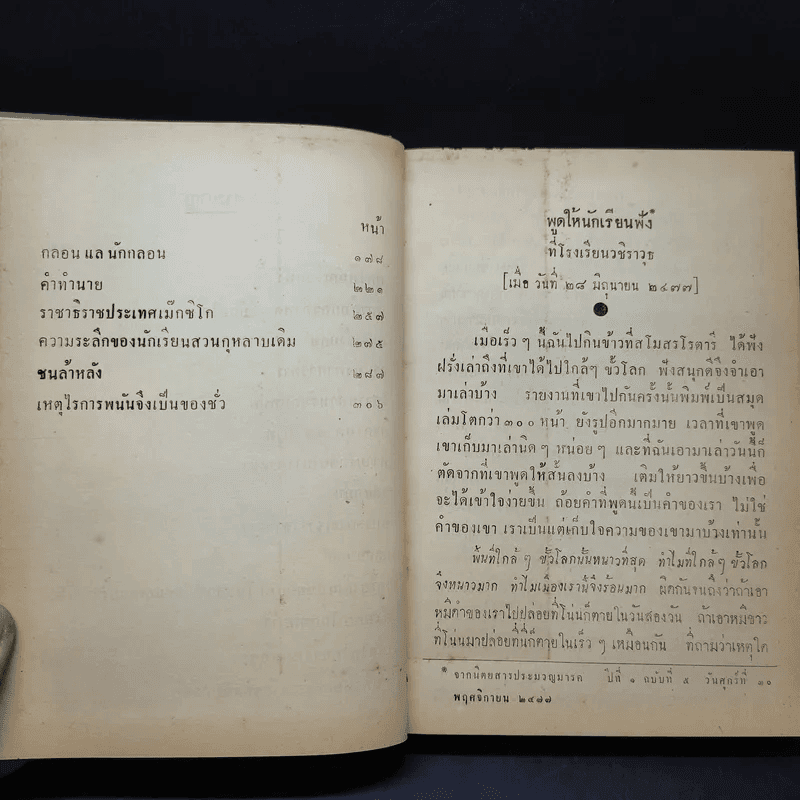 หน้า
กลอน แล นักกลอน ๑๗๘
คำทำนาย ๒๒๑
ราชาธิราชประเทศเม๊กซิโก ๒๕๗
ความระลึกของนักเรียนสวนกุหลาบเดิม ๒๗๕
ชนล้าหลัง ๒๘๗
เหตุไรการพนันจึงเป็นของชั่ว ๓๐๖
พูดให้นักเรียนฟัง*
ที่โรงเรียนวชิราวุธ
[เมื่อ วันที่ ๒๘ มิถุนายน ๒๔๗๗]
เมื่อเร็ว ๆ นี้ฉันไปกินข้าวที่สโมสรโรตารี ได้ฟัง
ฝรั่งเล่าถึงที่เขาได้ไปใกล้ๆ ขั้วโลก ฟังสนุกดีจึงจำเอา
มาเล่าบ้าง รายงานที่เขาไปกันครั้งนั้นพิมพ์เป็นสมุด
เล่มโตกว่า ๓๐๐ หน้า ยังรูปอีกมากมาย เวลาที่เขาพูด
เขาเก็บมาเล่านิด ๆ หน่อย ๆ และที่ฉันเอามาเล่าวันนี้ก็
ตัดจากที่เขาพูดให้สั้นลงบ้าง เติมให้ยาวขึ้นบ้างเพื่อ
จะได้เข้าใจง่ายขึ้น ถ้อยคำที่พูดนี้เป็นคำของเรา ไม่ใช่
คำของเขา เราเป็นแต่เก็บใจความของเขามาบ้างเท่านั้น
พื้นที่ใกล้ ๆ ขั้วโลกนั้นหนาวที่สุด ทำไมที่ใกล้ๆ ขั้วโลก
จึงหนาวมาก ทำไมเมืองเรานี้จึงร้อนมาก ผิดกันจนถึงว่าถ้าเอา
หมีดำของเราไปปล่อยที่โน่นก็ตายในวันสองวัน ถ้าเอาหมีขาว
ที่โน่นมาปล่อยที่นี่ก็ตายในเร็ว ๆ เหมือนกัน ที่ถามว่าเหตุใด
* จากนิตยสารประมวญมารค ปีที่ ๑ ฉบับที่ ๕ วันศุกร์ที่ ๓๐
พฤศจิกายน ๒๔๗๗